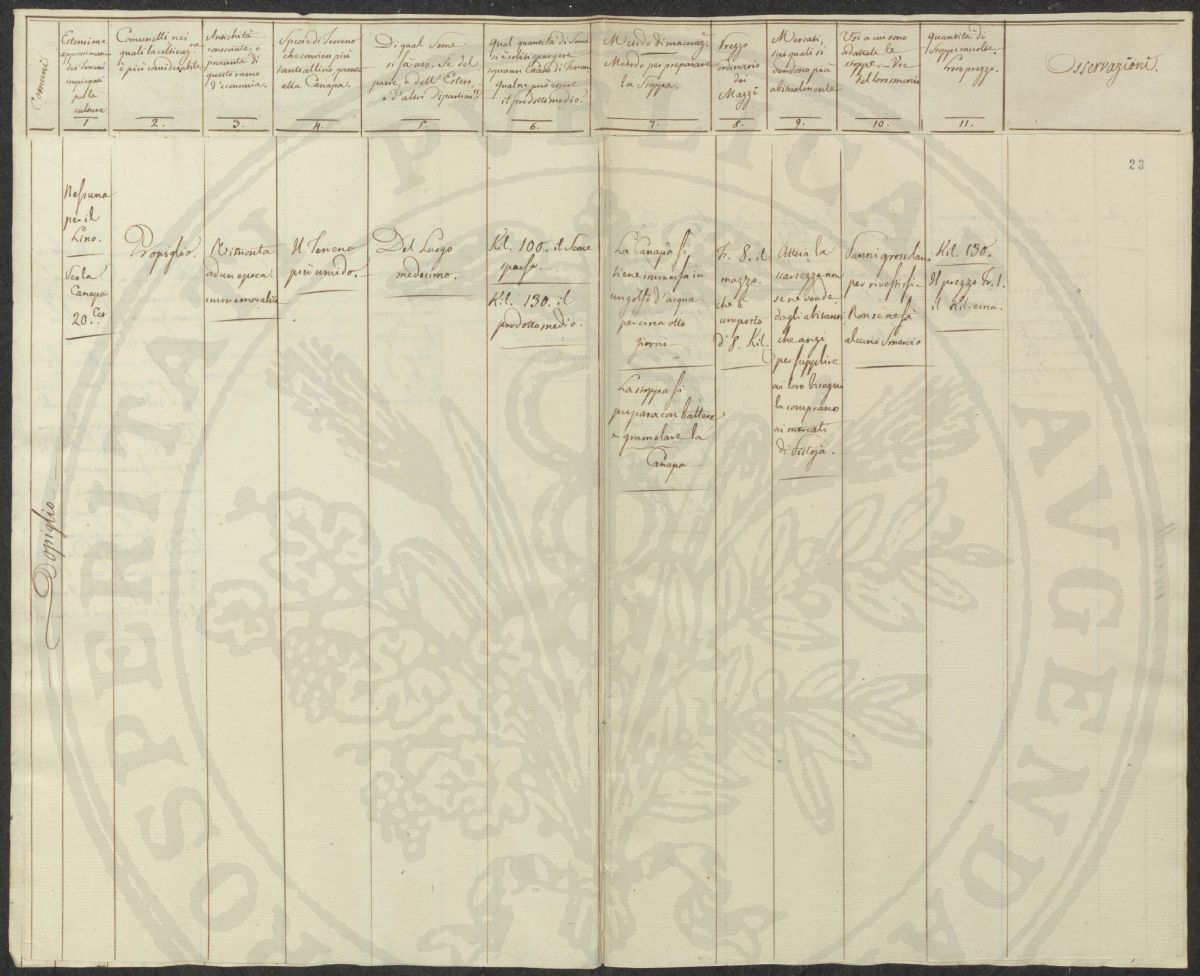 Comuni
Estensione
approssimativa
dei Terreni
impiegati
nella
cultura
1
Comunelli nei
quali la coltivaz.ne
è più considerabile
2.
Antichità
conosciuta, o
presunta di
questo ramo
d'economia.
3.
Specie di Terreno
che convien più
tanto al lino, quanto
alla Canapa.
4.
Di qual Seme
si fa uso. Se del
paese, o dell'Estero,
o d'altri Dipartim.ti
5.
Qual quantità di Seme
si è solito spargere
sopra un Ettaro di Terreno
Qual ne può essere
il prodotto medio?
6.
Metodo di maceraz.e
Metodo per preparare
la Stoppa.
7.
Prezzo
ordinario
dei
Mazzi
8.
Mercati,
sui quali si
vendono più
abitualmente
9.
Usi a cui sono
adattate le
stoppe. Vie
del loro smercio
10.
Quantità di
Stoppe raccolte.
Loro prezzo.
11.
Osservazioni.
23
Popiglio
Nessuna
per il
Lino.
Per la
Canapa
20. Ect
Popiglio.
Rimonta
ad un epoca
immemorabile
Il Terreno
più umido.
Del Luogo
medesimo.
Kil. 100. il Seme
sparso.
Kil. 130. il
prodotto medio.
La Canapa si
tiene immersa in
un golfo d'acqua
per circa otto
giorni
La stoppa si
prepara con battere
e gramolare la
Canapa
Fr. 8. il
mazzo.
che è
composto
di 8. Kil.
Attesa la
scarsezza non
se ne vende
dagli abitanti
che anzi
per supplire
ai loro bisogni
la comprano
ai mercati
di Pistoja.
Panni grossolani
per rivestirsi.
Non se ne fà
alcuno smercio
Kil. 130.
Il prezzo Fr. 1.
il Kil. circa.
PROSPERITATI PVBLICAE AVGENDAE